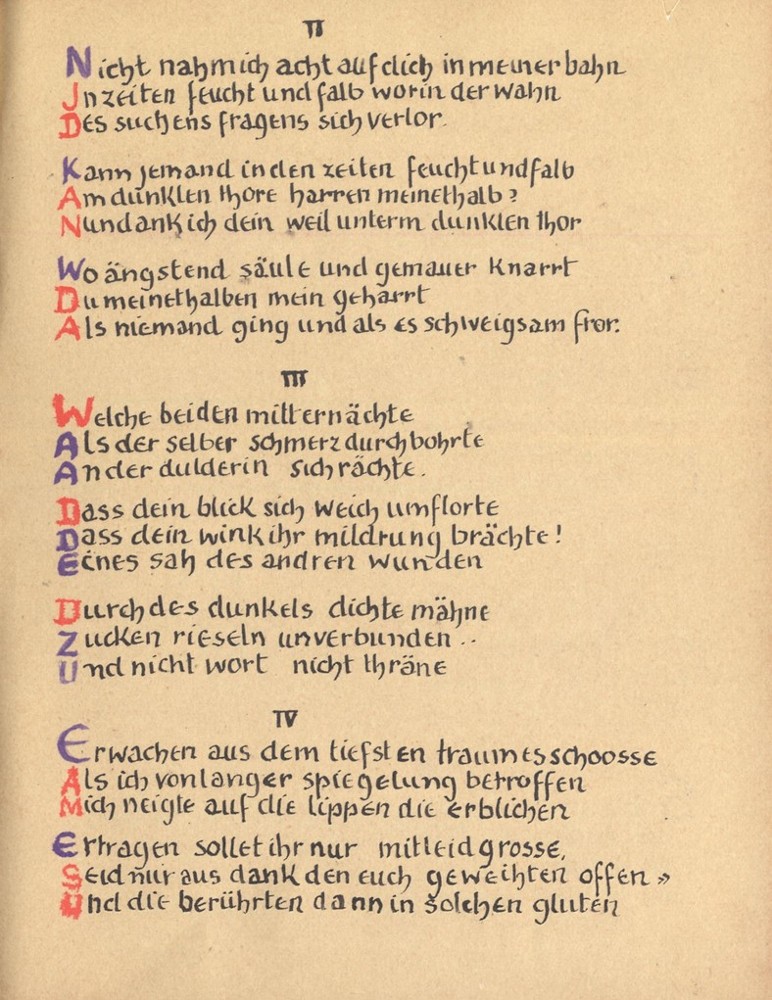 II
Nicht nahm ich acht auf dich in meiner bahn
In zeiten feucht und falb worin der wahn
Des suchens fragens sich verlor.
Kann jemand in den zeiten feucht und falb
Am dunklen thore harren meinethalb?
Nun dank ich dein weil unterm dunklen thor
Wo ängstend säule und gemäuer knarrt
Du meinethalben mein geharrt
Als niemand ging und als es schweigsam fror.
III
Welche beiden mitternächte
Als derselber schmerz durchbohrte
An der dulderin sich rächte.
Dass dein blick sich weich umflorte
Dass dein wink ihr mildrung brächte!
Eines sah des andren wunden
Durch des dunkels dichte mähne
Zucken rieseln unverbunden ..
Und nicht wort nicht thräne
IV
Erwachen aus dem tiefsten traumesschoosse
Als ich von langer spiegelung betroffen
Mich neigte auf die lippen die erblichen
Ertragen sollet ihr nur mitleid grosse,
Seid nur aus dank den euch geweihten offen »
Und die berührten dann in solchen gluten